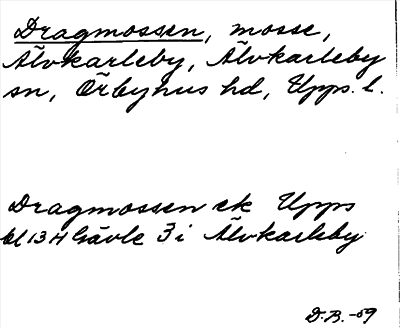 Dragmossen, mosse,
Älvkarleby, Älvkarleby
sn, Örbyhus hd, Upps. l.
Dragmossen ek Upps
bl 13 H Gävle 3 i Älvkarleby
D.B. -59